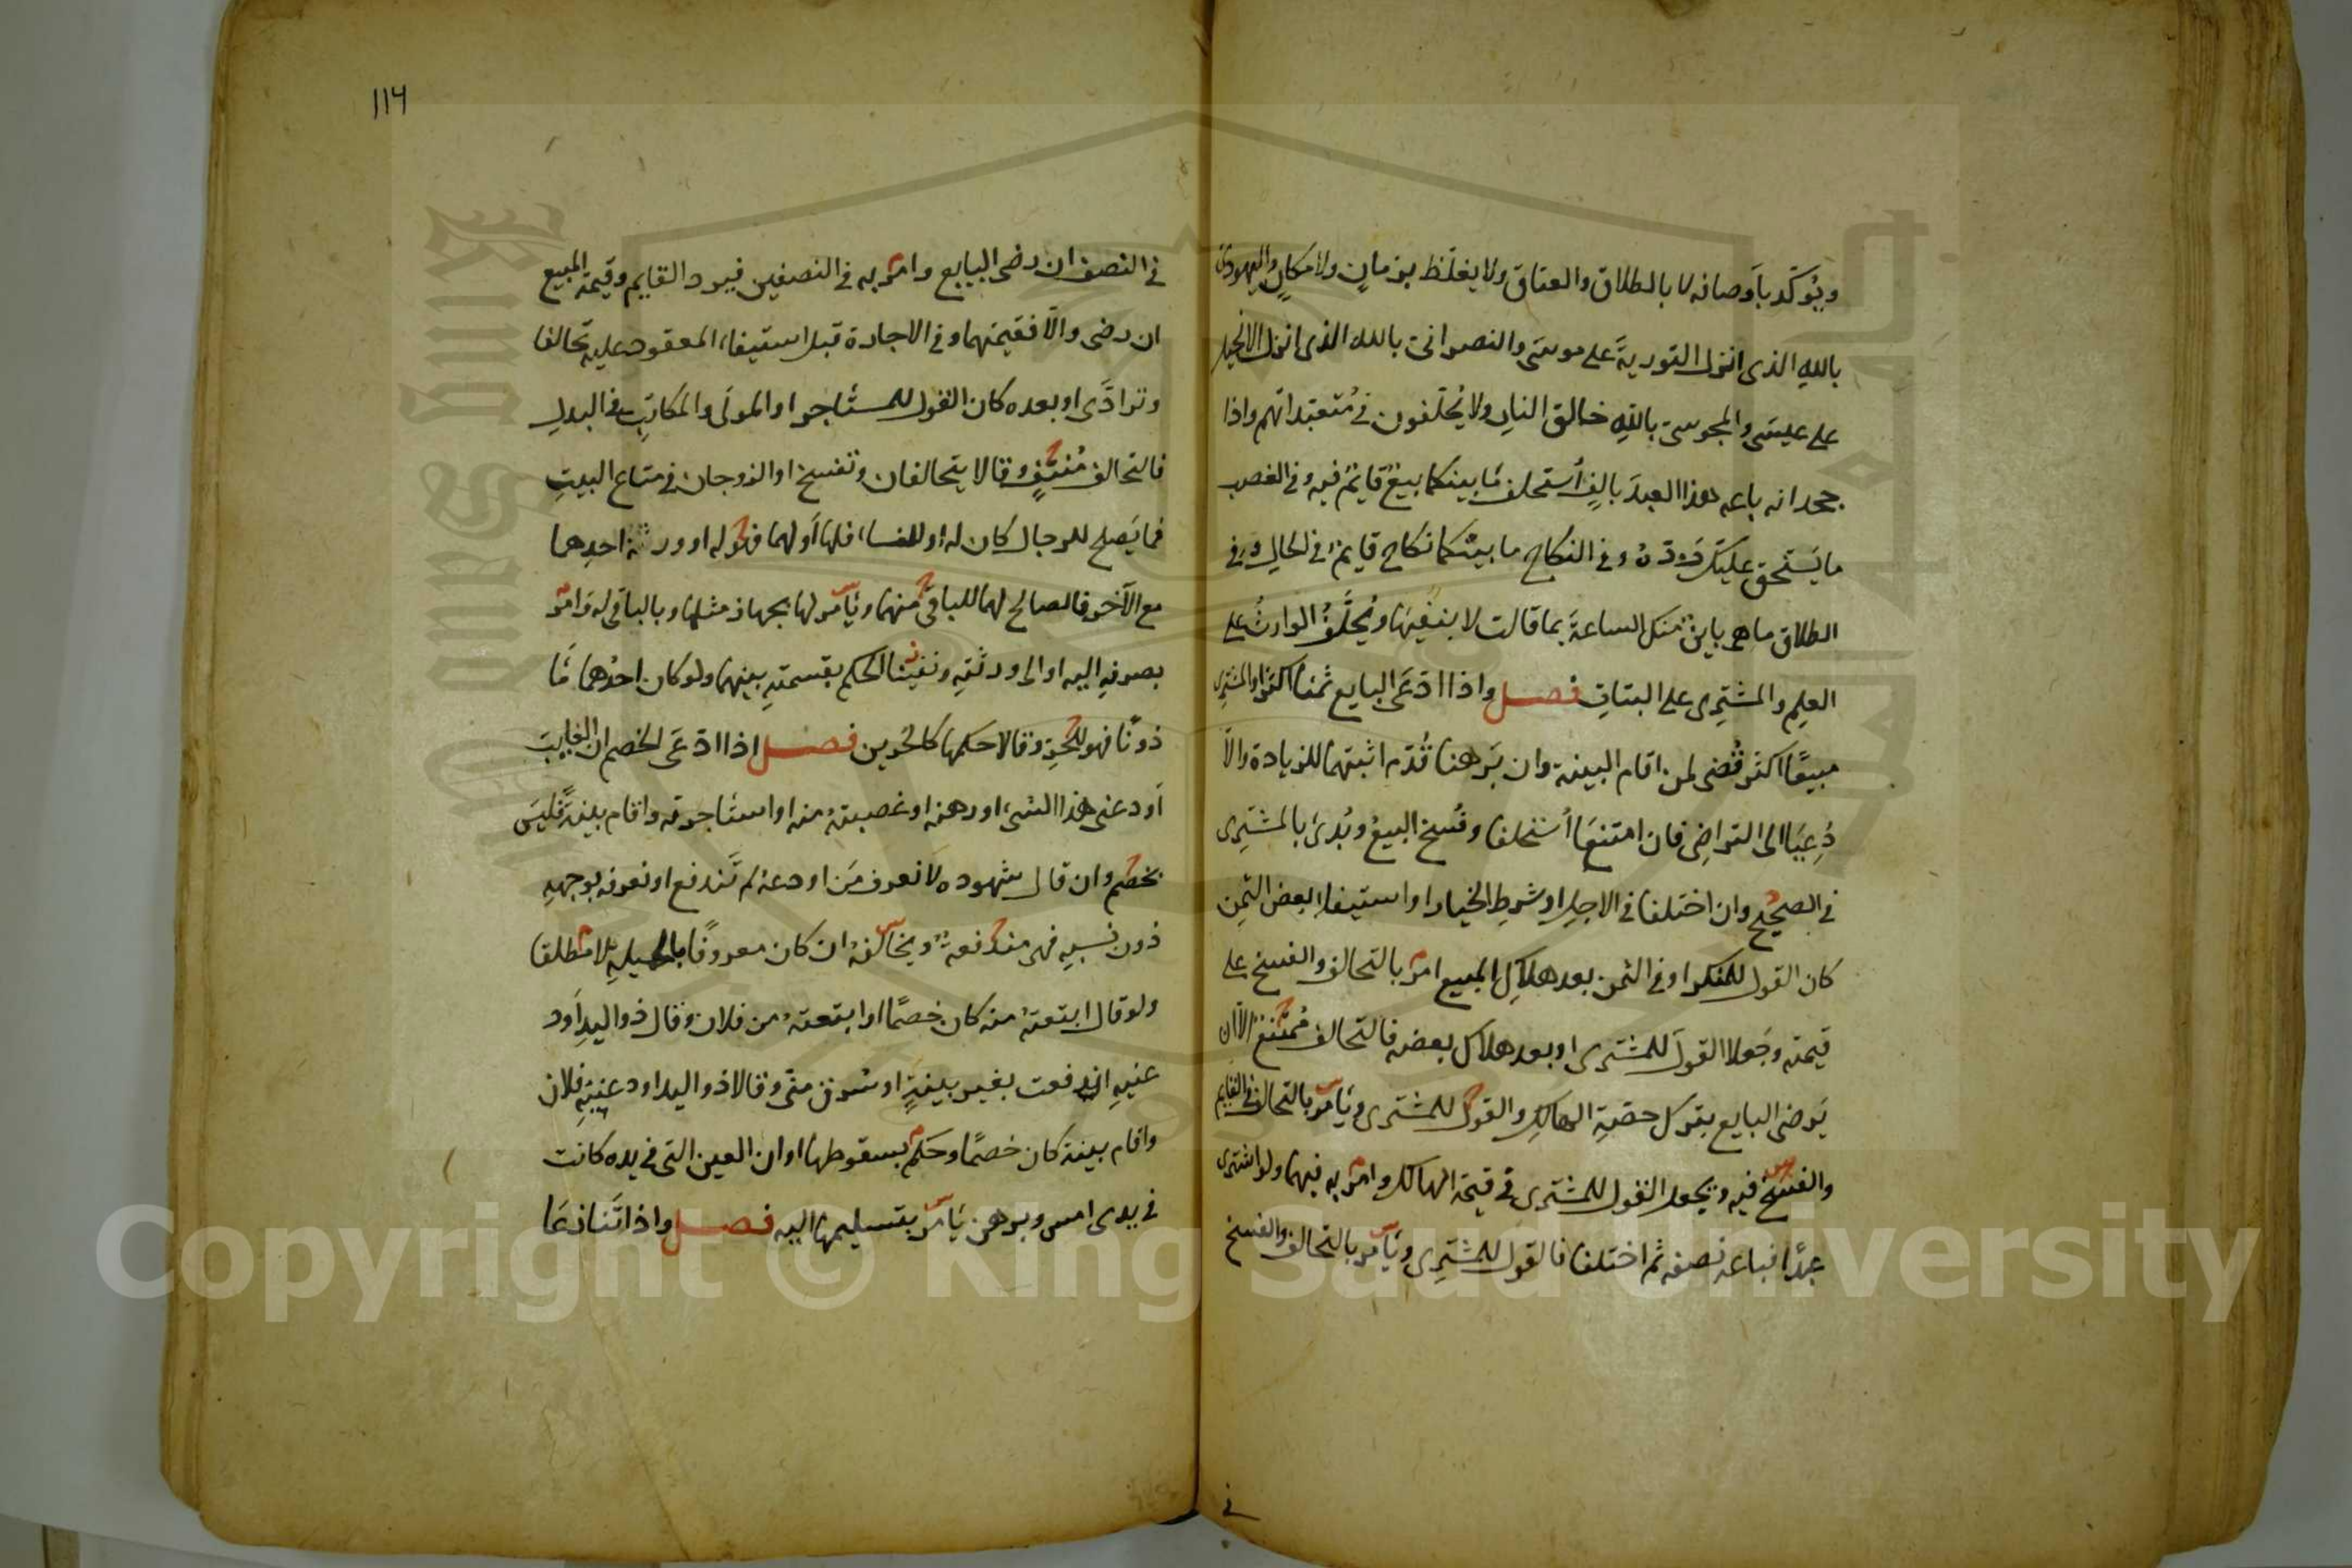 ويؤكد بأوصافه لا بالطلاق والعتاق ولا يغلظ بزمان ولا مكان واليهودى
بالله الذى انزل التورية على موسى والنصرانى بالله الذى انزل الانجيل
على عيسى والمجوسى بالله خالق النار ولا يحلفون فى متعبداتهم واذا
جحد انه باعه هذا العبد بالف أستحلف ما بينكما بيع قايم فيه وفى الغصب
ما يستحق عليك رده وفى النكاح ما بينكما نكاح قايم فى الحال وفى
الطلاق ما هى باين منك الساعة بما قالت لا بنفيها ويحلف الوارث على
العلم والمشترى على البتات فصل واذا ادعى البايع ثمنا اكثر او المشترى
مبيعا اكثر قضى لمن اقام البينة وان برهنا قدم اثبتهما للزيادة والا
دعيا الى التراضى فان امتنعا أستحلفا وفسخ البيع وبدئ بالمشترى
فى الصحيح وان اختلفا فى الاجل او شرط الخيار او استيفاء بعض الثمن
كان القول للمنكر او فى الثمن بعد هلاك المبيع امر بالتحالف والفسخ على
قيمته وجعلا القول للمشترى او بعد هلاك بعضه فالتحالف ممتنع الا ان
يرضى البايع بترك حصة الهالك والقول للمشترى ويامر بالتحالف فى القايم
والفسخ فيه ويجعل القول للمشترى فى قيمة الهالك وامر به فيهما ولو اشترى
عبدا فباعه نصفه ثم اختلفا فالقول للمشترى ويامر بالتحالف والفسخ
فى
١١٦
فى النصف ان رضى البايع وامر به فى النصفين فيرد القايم وقيمة المبيع
ان رضى والا فقيمتهما وفى الاجارة قبل استيفاء المعقود عليه تحالفا
وترادا او بعده كان القول للمستاجر او المولى والمكاتب فى البدل
فالتحالف منتف وقالا يتحالفان وتفسخ او الزوجان فى متاع البيت
فما يصلح للرجال كان له او للنساء فلها أو لهما فهو له او ورثة احدهما
مع الآخر فالصالح لهما للباقى منهما ويامر لها بجهاز مثلها وبالباقى له وامر
بصرفه اليه او الى ورثته ونفينا الحكم بقسمته بينهما ولو كان احدهما مأ
ذونا فهو للحر وقالا حكمها كالحرين فصل اذا ادعى الخصم ان الغايب
أودعنى هذا الشىء او رهنه او غصبته منه او استأجرته واقام بينة فليس
بخصم وان قال شهوده لا نعرف من اودعه لم تندفع او نعرفه بوجهه
دون نسبه فهى مندفعة ويخالفه ان كان معروفا بالحيلة لا مطلقا
ولو قال ابتعته منه كان خصما او ابتعته من فلان وقال ذو اليد أود
عنيه اندفعت بغير بينة او سرق منى وقالا ذو اليد اودعنيه فلان
واقام بينة كان خصما وحكم بسقوطها او ان العين التى فى يده كانت
فى يدى امس وبرهن يامر بتسليمها اليه فصل واذا تنازعا
Copyright © King Saud University